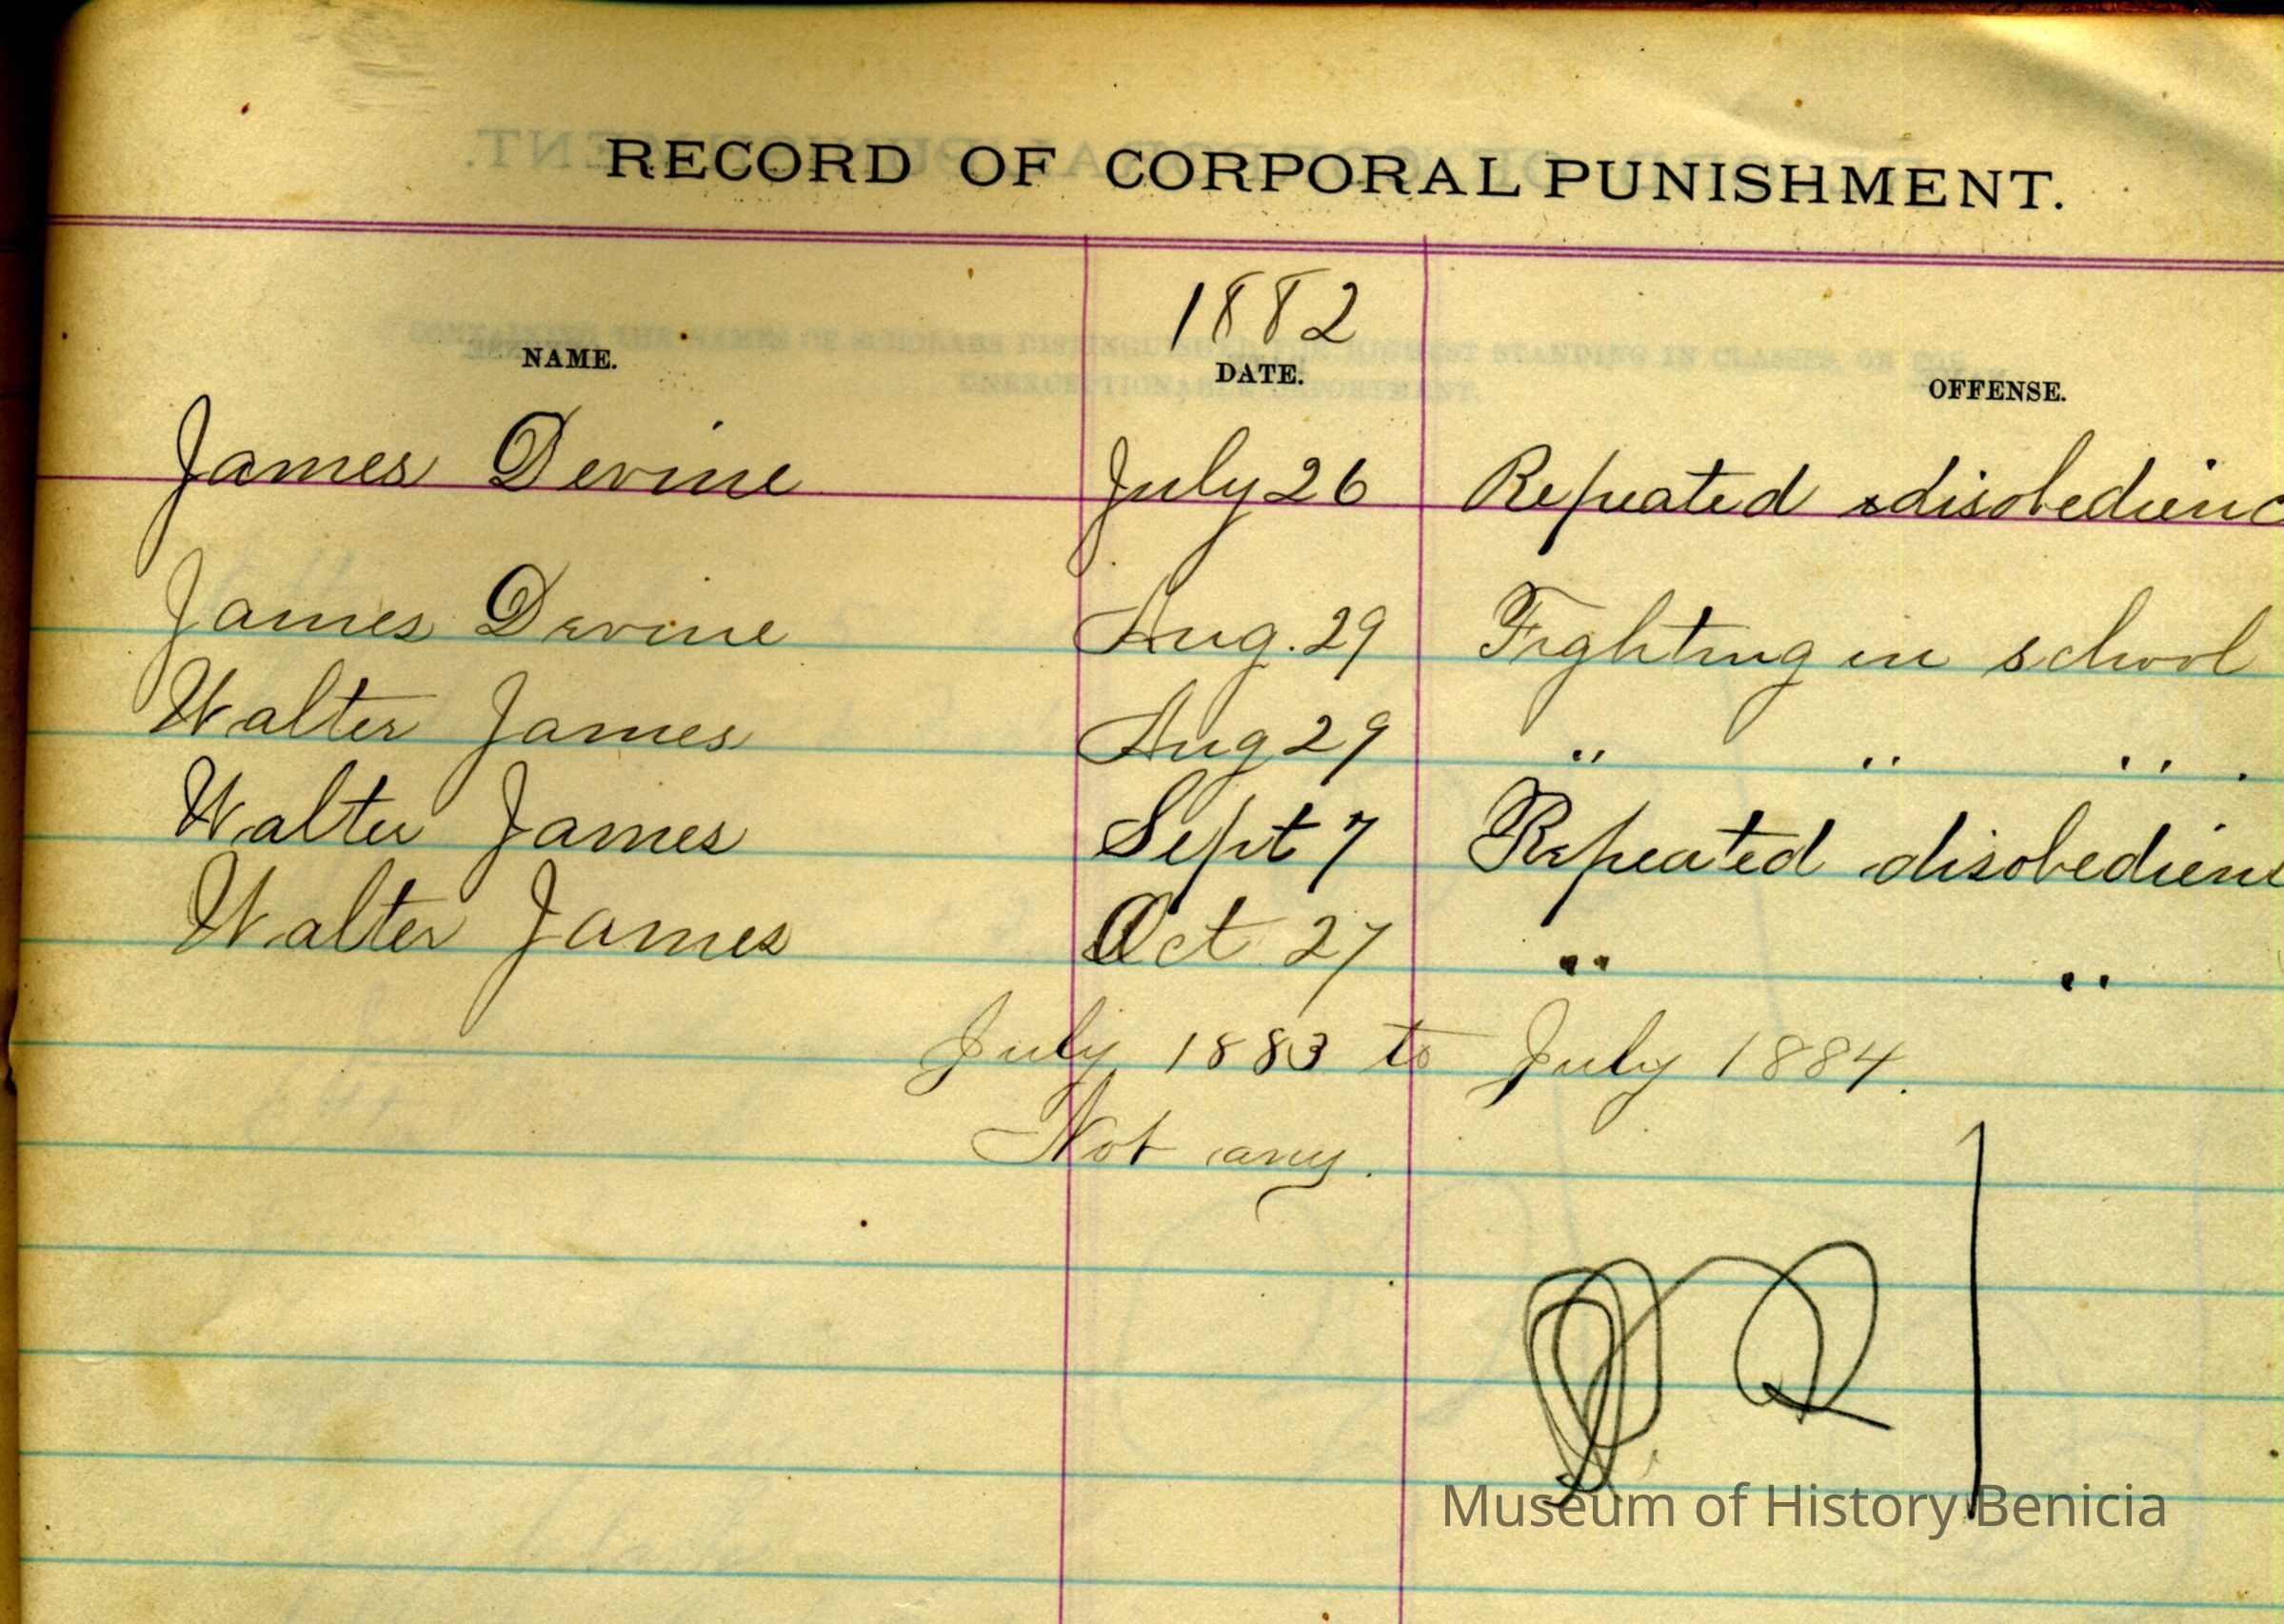 RECORD OF CORPORAL PUNISHMENT.
1882
NAME. DATE. OFFENSE.
James Devine July 26 Repeated disobedienc
James Devine Aug. 29 Fighting in school
Walter James Aug 29 " " " "
Walter James Sept 7 Repeated disobedienc
Walter James Oct 27 " "
July 1883 to July 1884.
Not any.
Museum of History Benicia